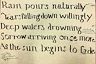 Rain pours naturally
Tears falling down willingly
Deep waters drowning
Sorrow arriving once more
As the sun begins to fade.